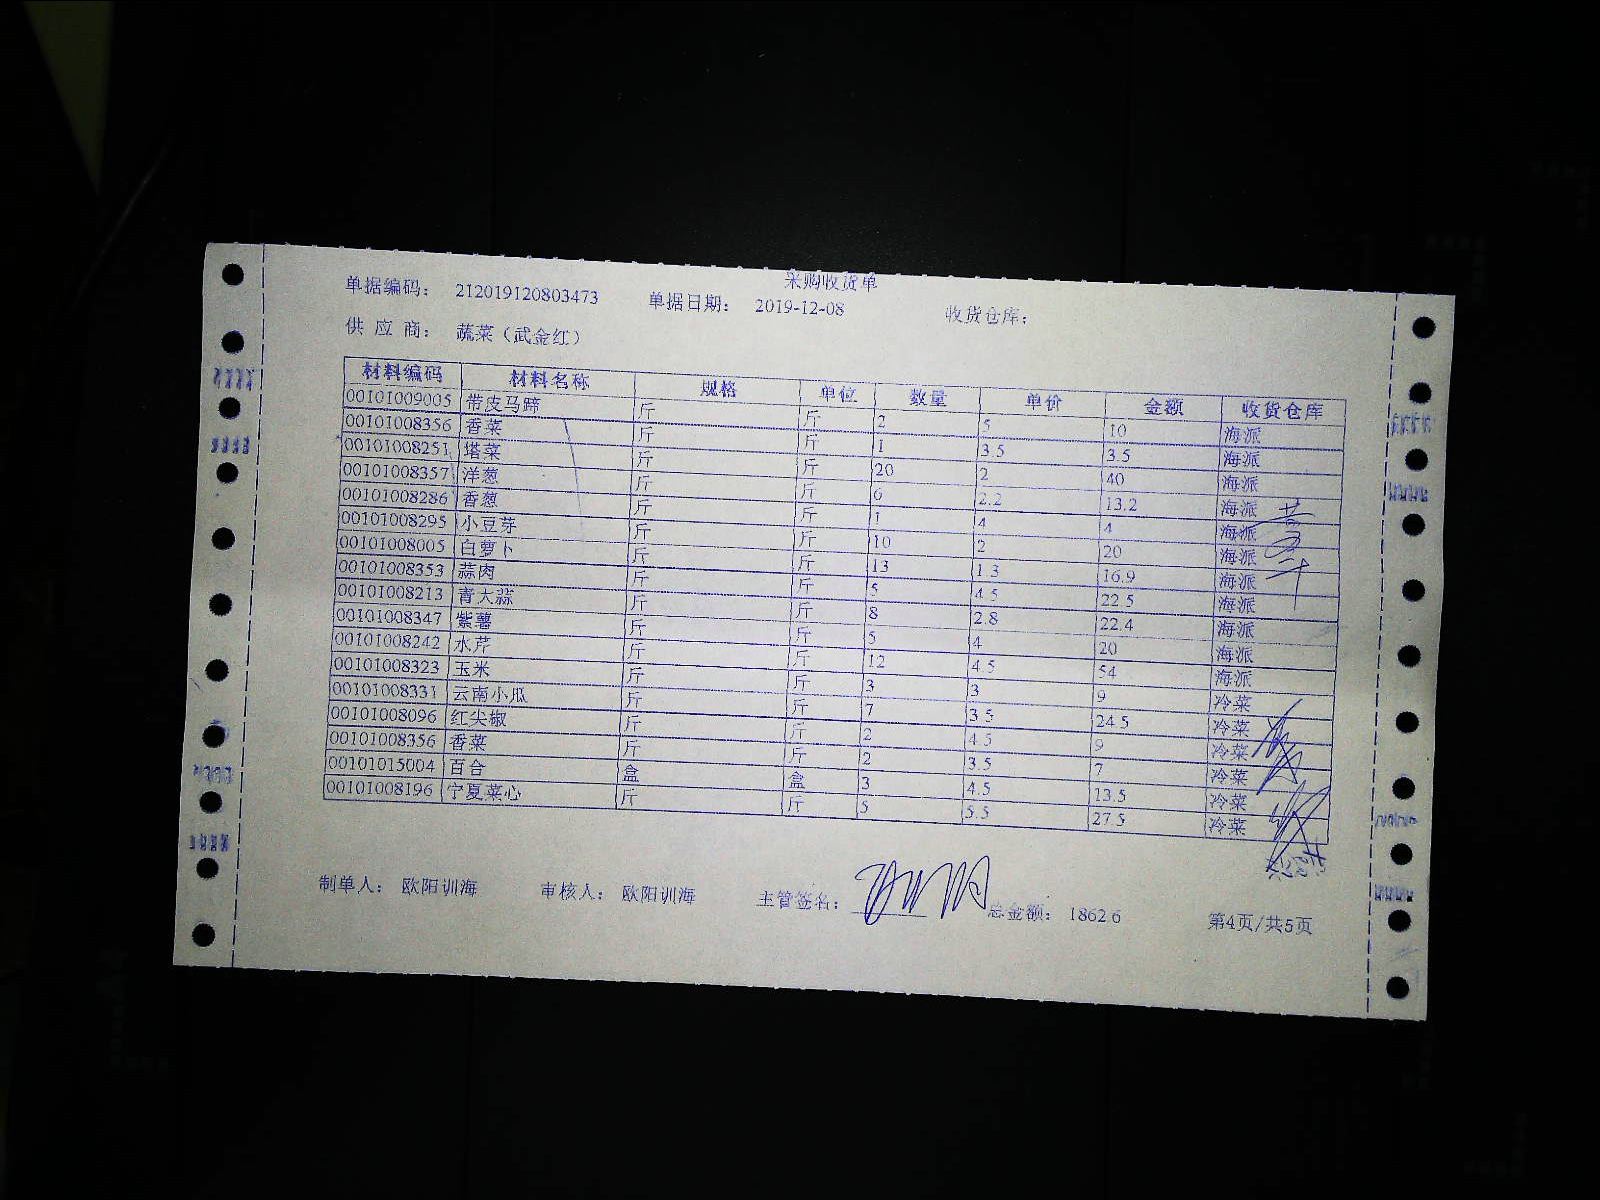 采购收货单
单据编码： 212019120803473 单据日期： 2019-12-08 收货仓库：
供 应 商： 蔬菜（武金红）
材料编码 材料名称 规格 单位 数量 单价 金额 收货仓库
00101009005 带皮马蹄 斤 斤 2 5 10 海派
00101008356 香菜 斤 斤 1 3.5 3.5 海派
00101008251 塔菜 斤 斤 20 2 40 海派
00101008357 洋葱 斤 斤 6 2.2 13.2 海派
00101008286 香葱 斤 斤 1 4 4 海派
00101008295 小豆芽 斤 斤 10 2 20 海派
00101008005 白萝卜 斤 斤 13 1.3 16.9 海派
00101008353 蒜肉 斤 斤 5 4.5 22.5 海派
00101008213 青大蒜 斤 斤 8 2.8 22.4 海派
00101008347 紫薯 斤 斤 5 4 20 海派
00101008242 水芹 斤 斤 12 4.5 54 海派
00101008323 玉米 斤 斤 3 3 9 冷菜
00101008331 云南小瓜 斤 斤 7 3.5 24.5 冷菜
00101008096 红尖椒 斤 斤 2 4.5 9 冷菜
00101008356 香菜 斤 斤 2 3.5 7 冷菜
00101015004 百合 盒 盒 3 4.5 13.5 冷菜
00101008196 宁夏菜心 斤 斤 5 5.5 27.5 冷菜
制单人： 欧阳训海 审核人： 欧阳训海 主管签名： 总金额： 1862.6 第4页/共5页